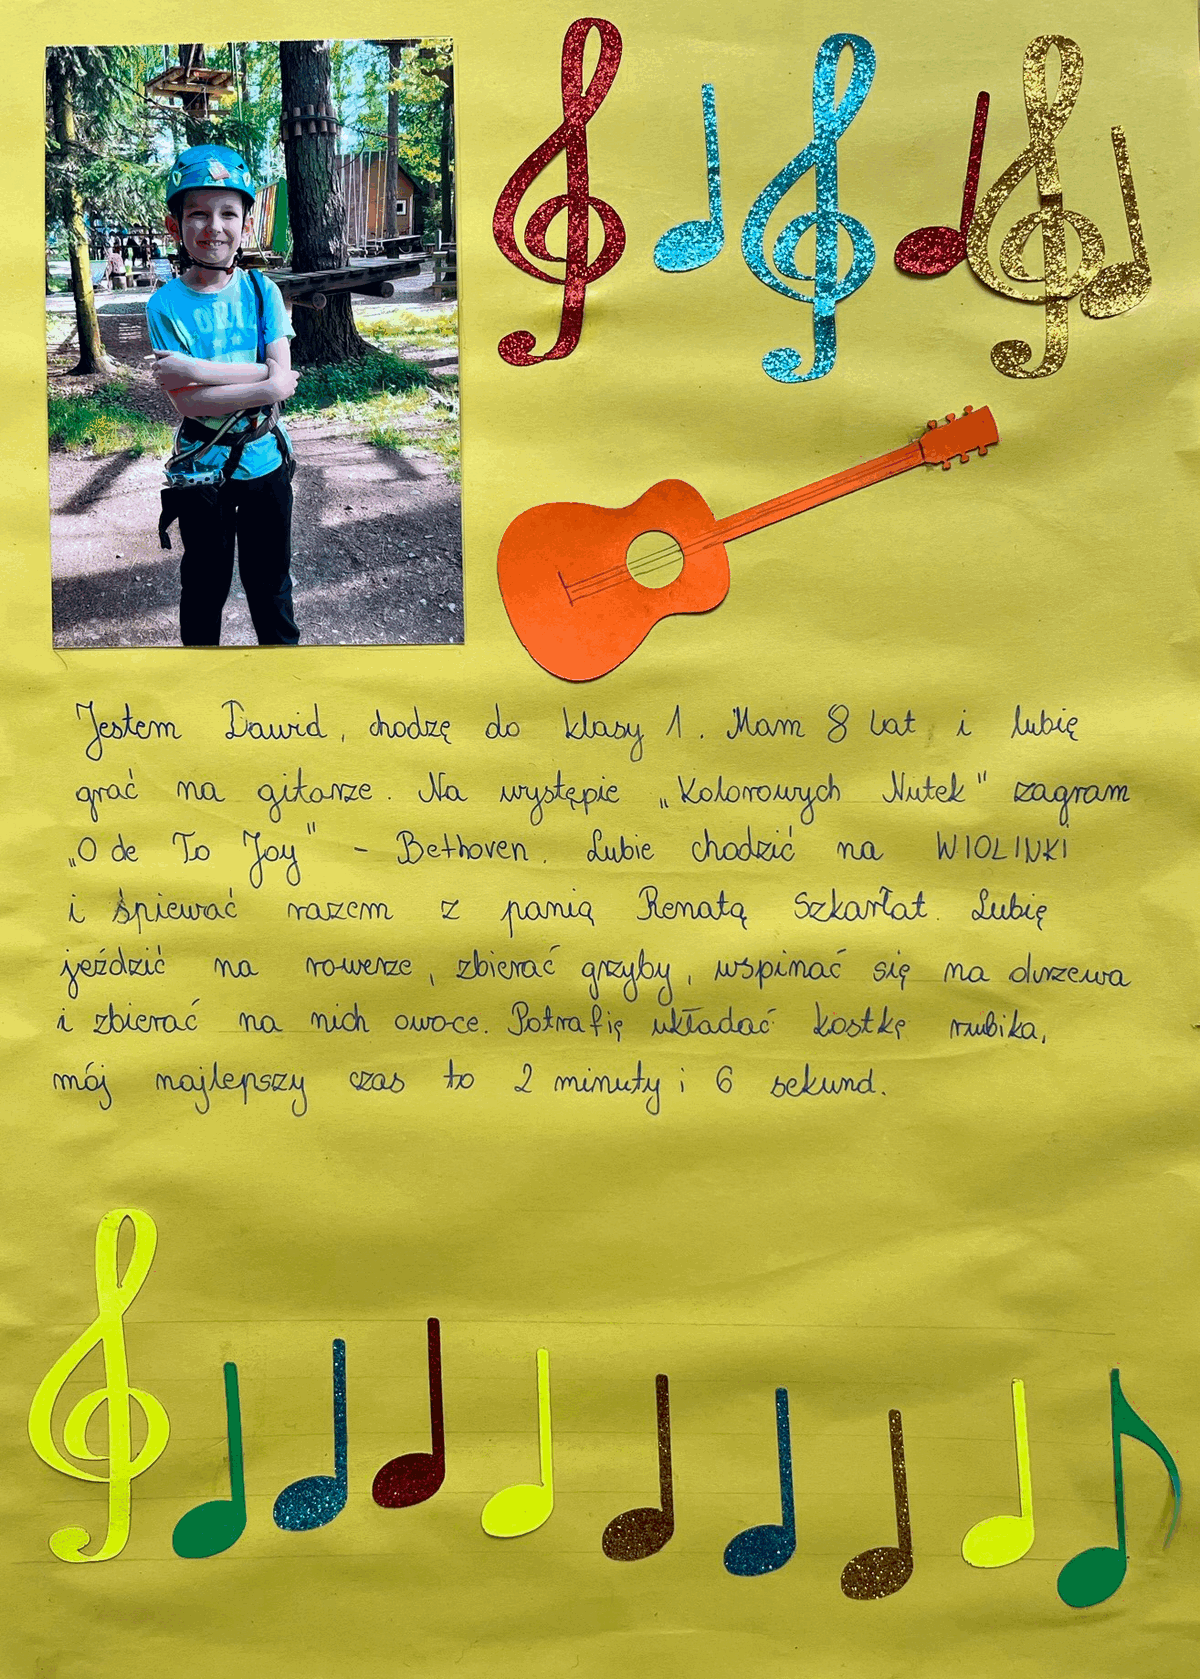 Jestem Dawid, chodzę do klasy 1. Mam 8 lat i lubię
grać na gitarze. Na występie „Kolorowych Nutek" zagram
„Ode To Joy" - Bethoven. Lubie chodzić na WIOLINKI
i śpiewać razem z panią Renatą Szkarłat. Lubię
jeździć na rowerze, zbierać grzyby, wspinać się na drzewa
i zbierać na nich owoce. Potrafię układać kostkę rubika,
mój najlepszy czas to 2 minuty i 6 sekund.